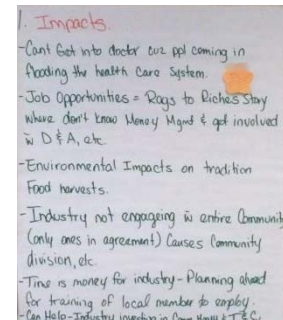 1. Impacts.
-Cant Get into doctor cuz ppl coming in
flooding the health Care System.
-Job Opportunities = Rags to Riches Story
where don't know Money Mgmt & get involved
in D & A, etc.
-Environmental Impacts on tradition
Food harvests.
-Industry not engageing w entire Communit
(only ones in agreement) Causes Community
division, etc.
-Time is money for industry - Planning ahead
for training of local member to employ.
-Can Help-Industry investing in